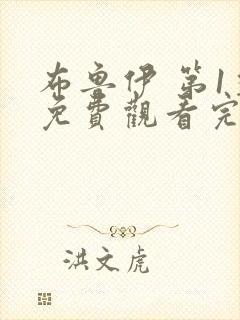 布魯伊 第1
免費觀看完
洪文虎